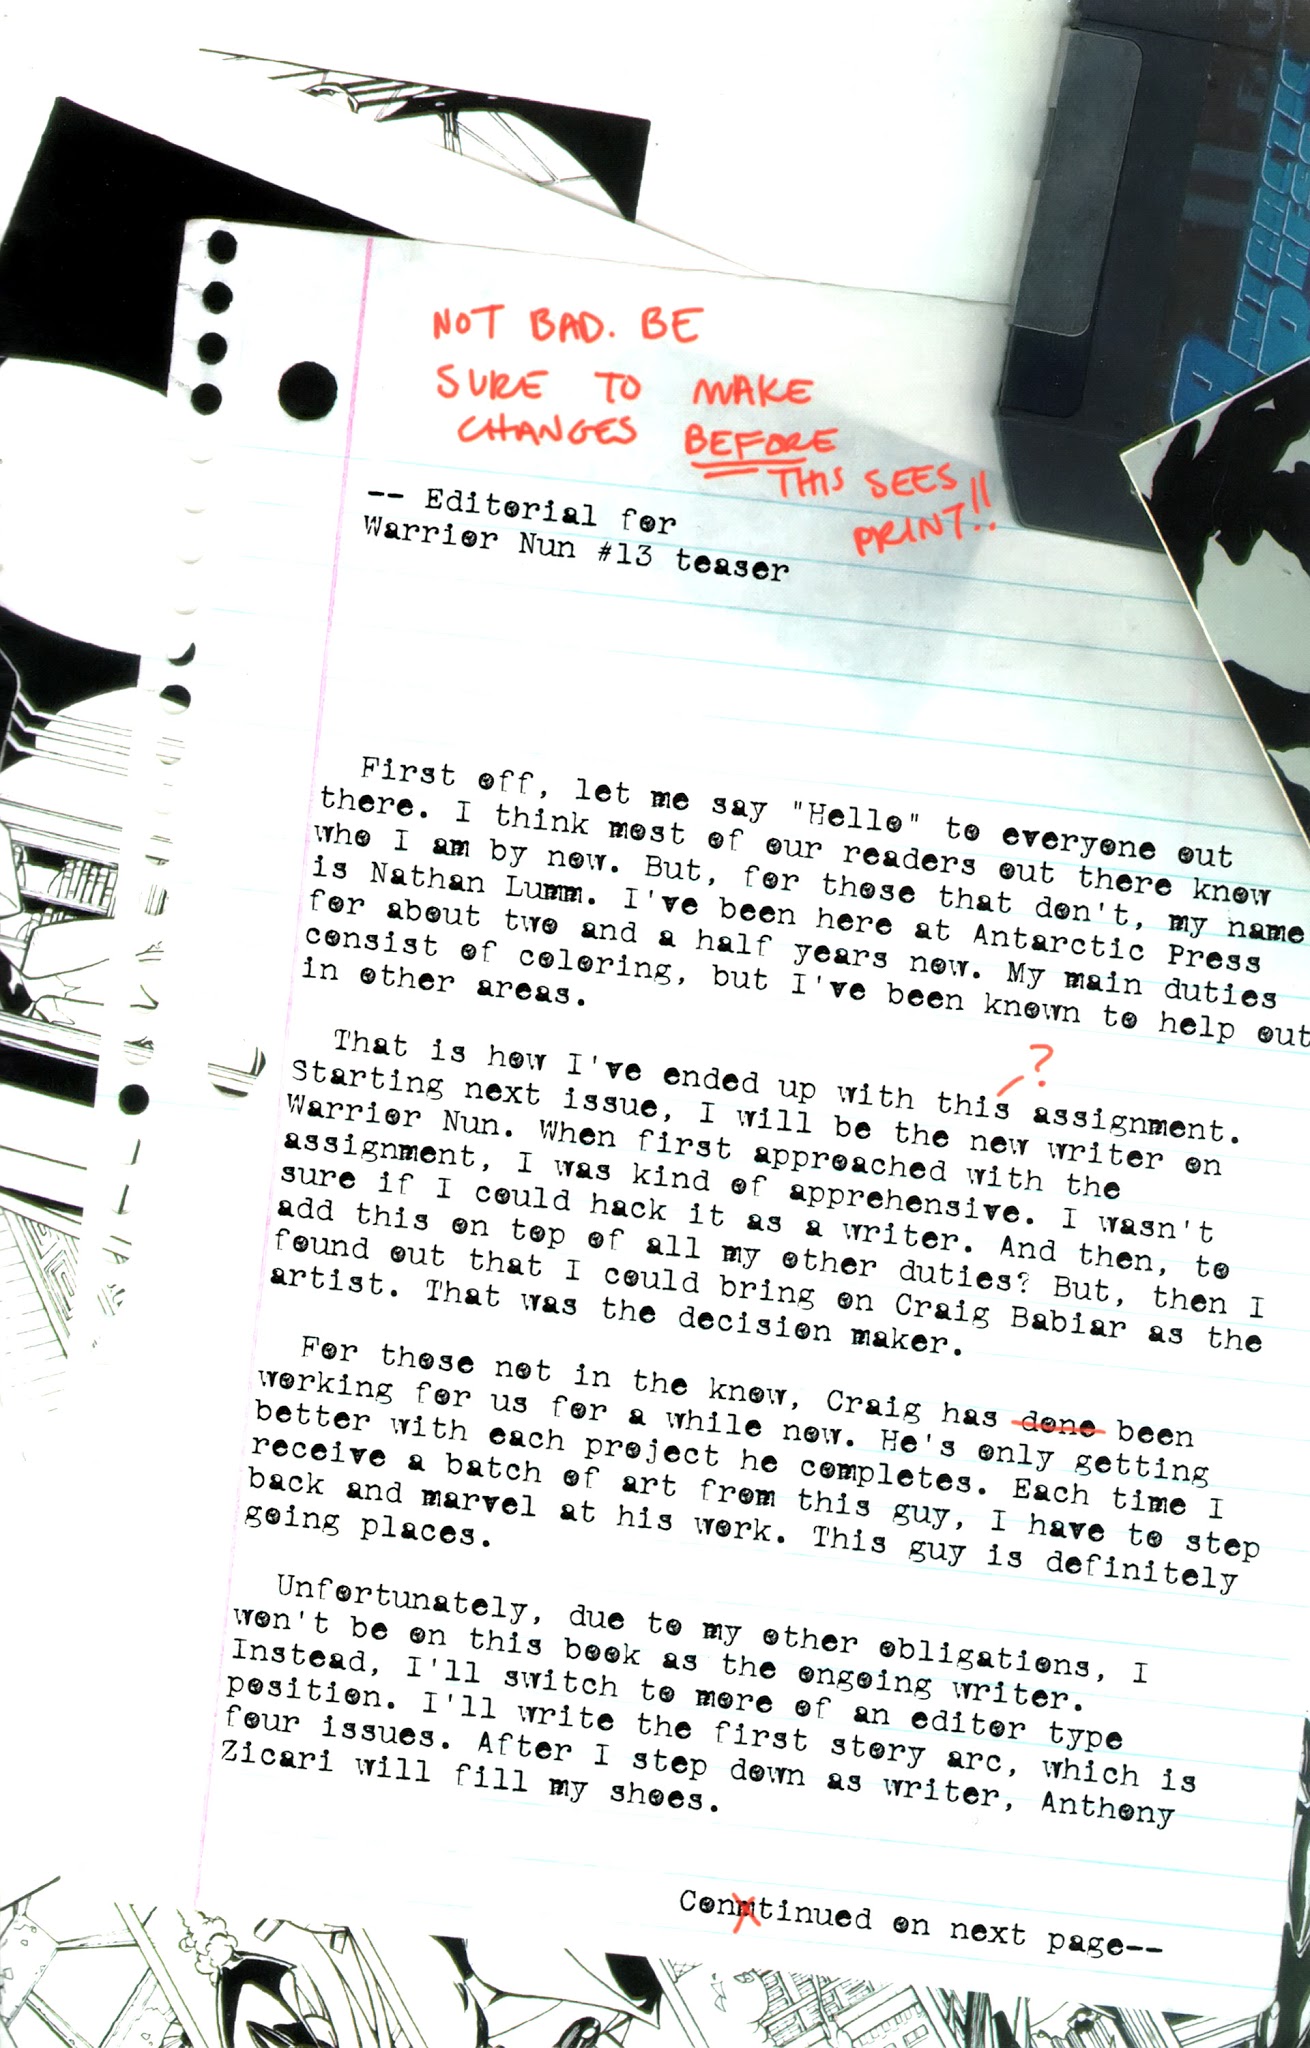 NOT BAD. BE
SURE TO MAKE
CHANGES BEFORE
THIS SEES
PRINT!!
-- Editorial for
Warrior Nun #13 teaser
First off, let me say "Hello" to everyone out
there. I think most of our readers out there know
who I am by now. But, for those that don't, my name
is Nathan Lumm. I've been here at Antarctic Press
for about two and a half years now. My main duties
consist of coloring, but I've been known to help out
in other areas.
?
That is how I've ended up with this assignment.
Starting next issue, I will be the new writer on
Warrior Nun. When first approached with the
assignment, I was kind of apprehensive. I wasn't
sure if I could hack it as a writer. And then, to
add this on top of all my other duties? But, then I
found out that I could bring on Craig Babiar as the
artist. That was the decision maker.
For those not in the know, Craig has done been
working for us for a while now. He's only getting
better with each project he completes. Each time I
receive a batch of art from this guy, I have to step
back and marvel at his work. This guy is definitely
going places.
Unfortunately, due to my other obligations, I
won't be on this book as the ongoing writer.
Instead, I'll switch to more of an editor type
position. I'll write the first story arc, which is
four issues. After I step down as writer, Anthony
Zicari will fill my shoes.
Conmtinued on next page--
ANTARCTIC